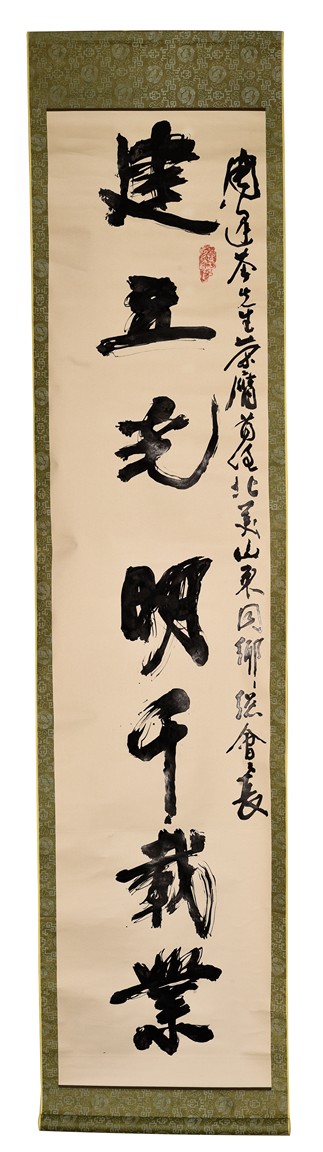 先生榮膺首任北美山東同鄉總會會長
建立光明千載業